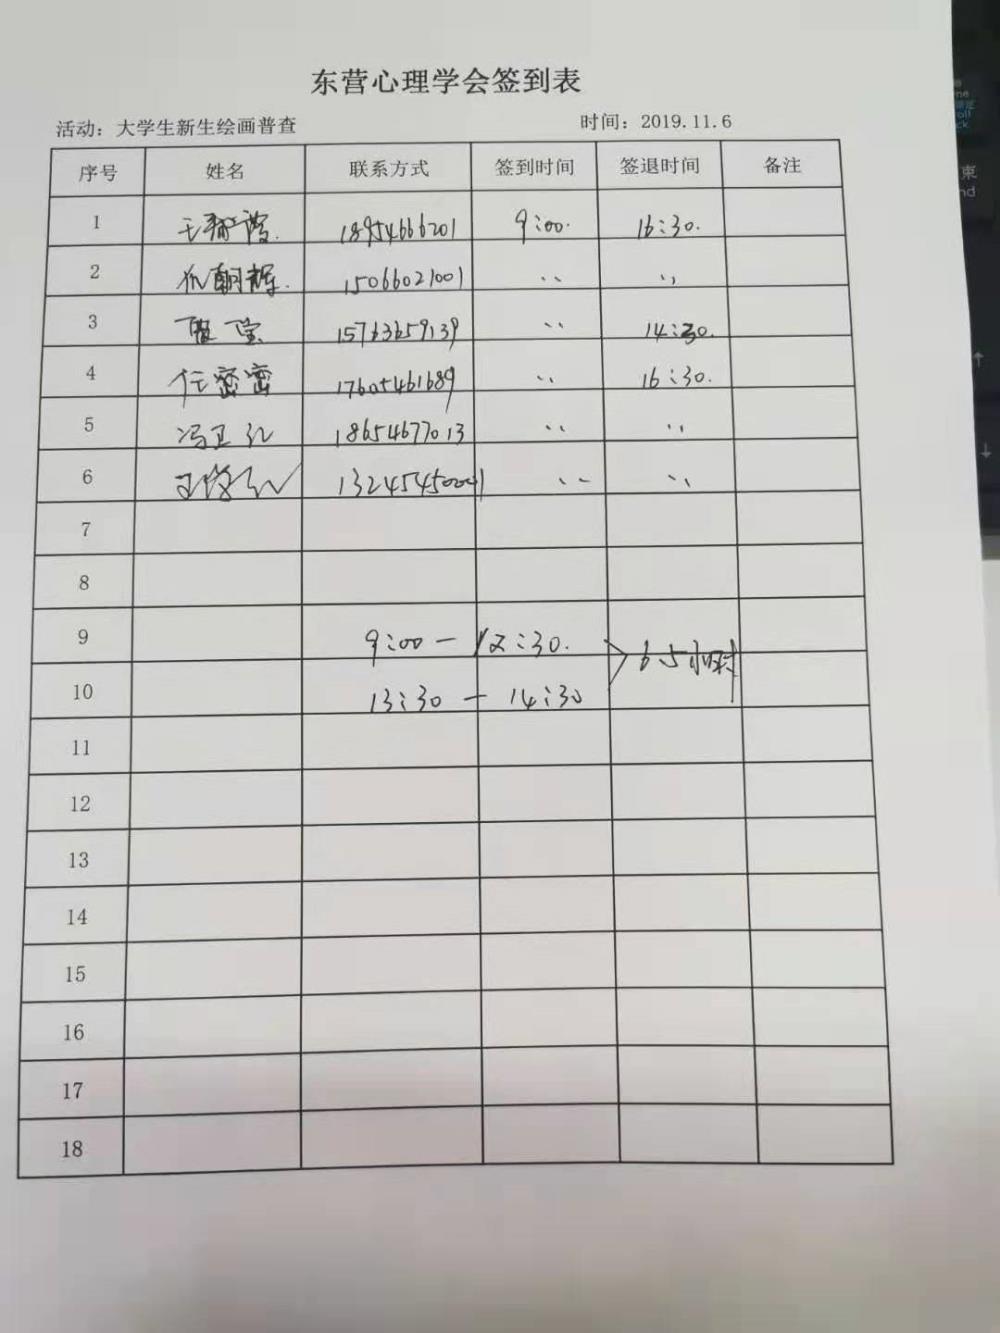 东营心理学会签到表
活动：大学生新生绘画普查 时间：2019.11.6
序号 姓名 联系方式 签到时间 签退时间 备注
1 18954666201 9:00. 16:30.
2 15066021001 〃 〃
3 15763659139 〃 14:30.
4 任密密 17605461689 〃 16:30.
5 冯卫红 18654677013 〃 〃
6 〃 〃
7
8
9 9:00 — 12:30. 6.5小时
10 13:30 — 14:30
11
12
13
14
15
16
17
18